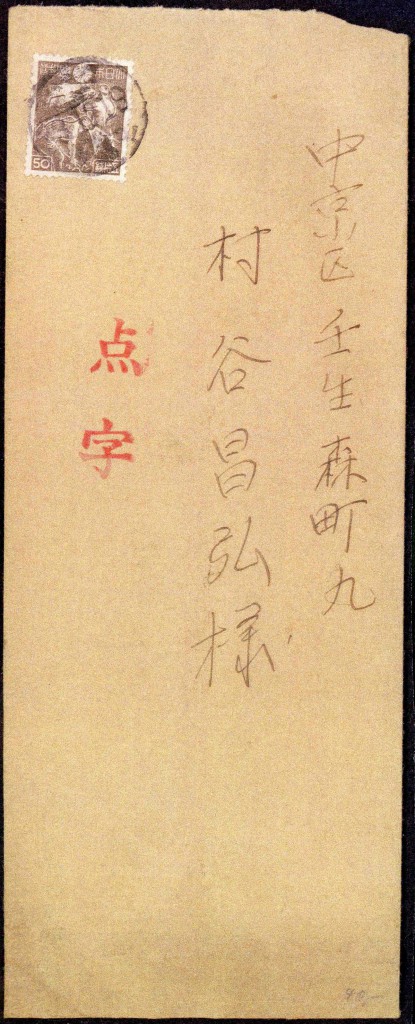 中京区壬生森町九
村谷昌弘様
点字
50